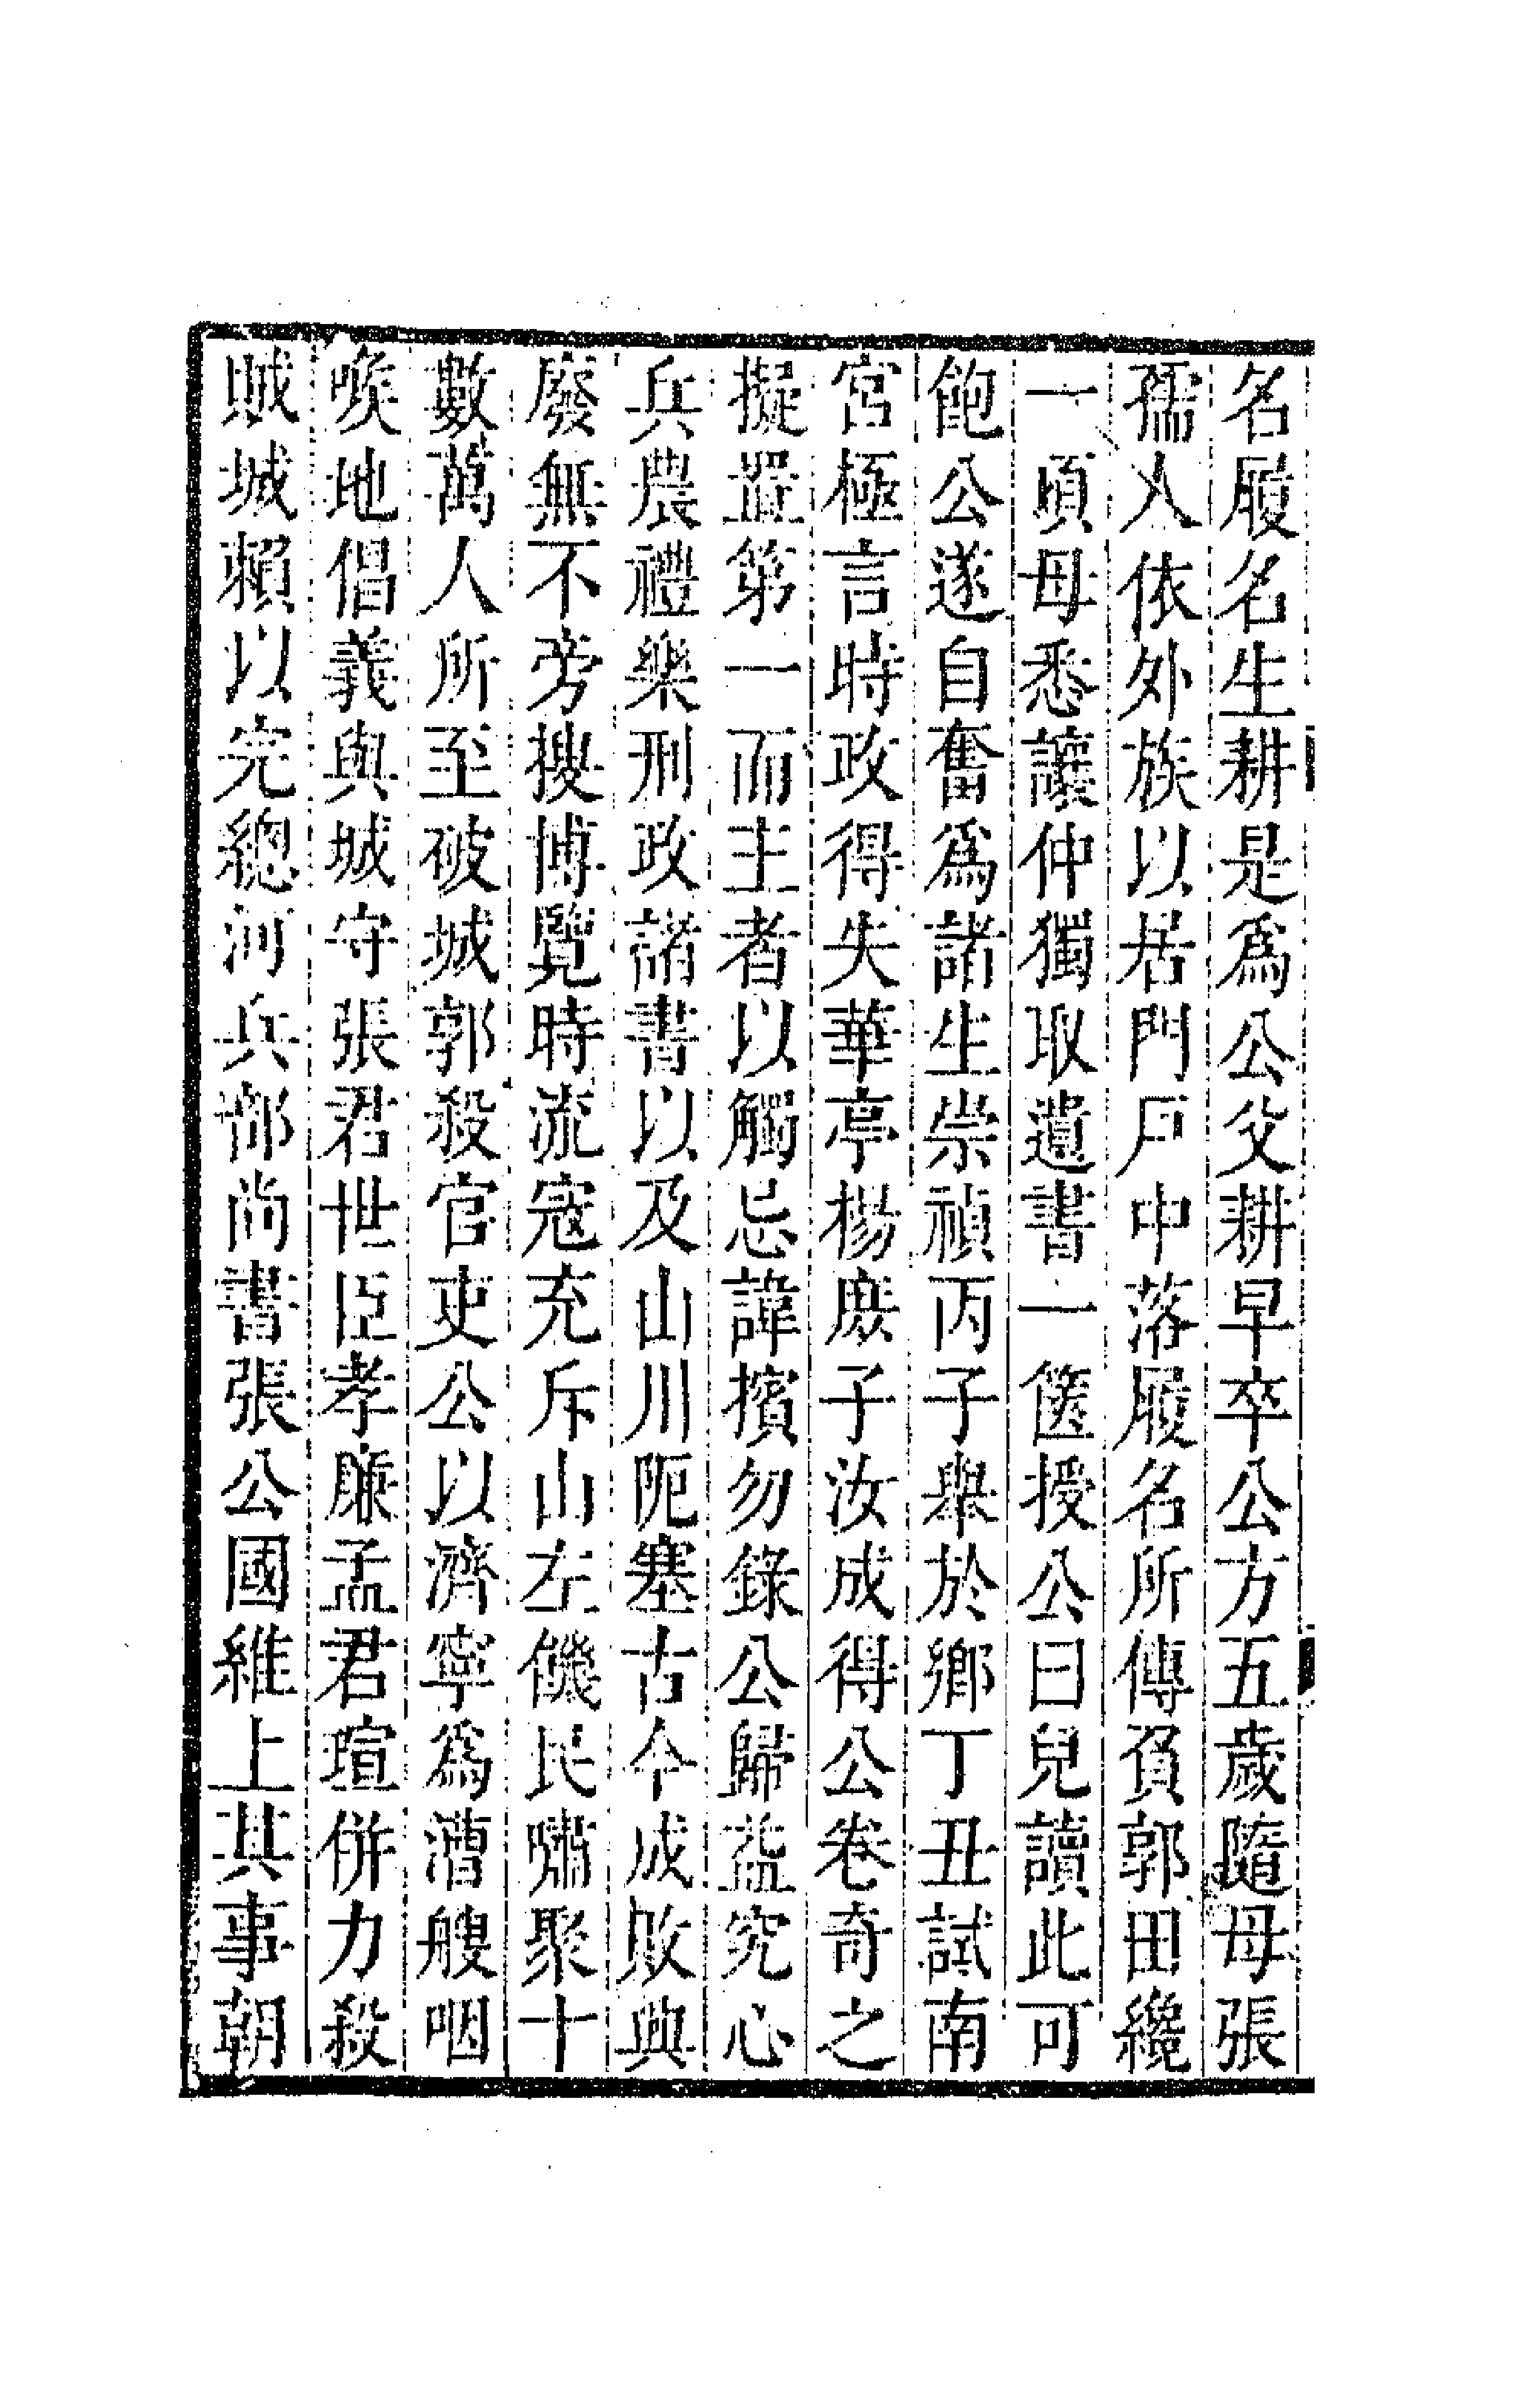 名履名生耕是為公父耕早卒公方五歲隨母張
孺人依外族以居門戶中落履名所傳負郭田纔
一頃母悉讓仲獨取遺書一篋授公曰兒讀此可
飽公遂自奮為諸生崇禎丙子舉於鄉丁丑試南
宮極言時政得失華亭楊庶子汝成得公卷奇之
擬置第一而主者以觸忌諱擯勿錄公歸益究心
兵農禮樂刑政諸書以及山川阨塞古今成敗興
廢無不旁搜博覽時流寇充斥山左饑民嘯聚十
數萬人所至破城郭殺官吏公以濟寧為漕艘咽
喉地倡義與城守張君世臣孝廉孟君瑄併力殺
賊城賴以完總河兵部尚書張公國維上其事朝